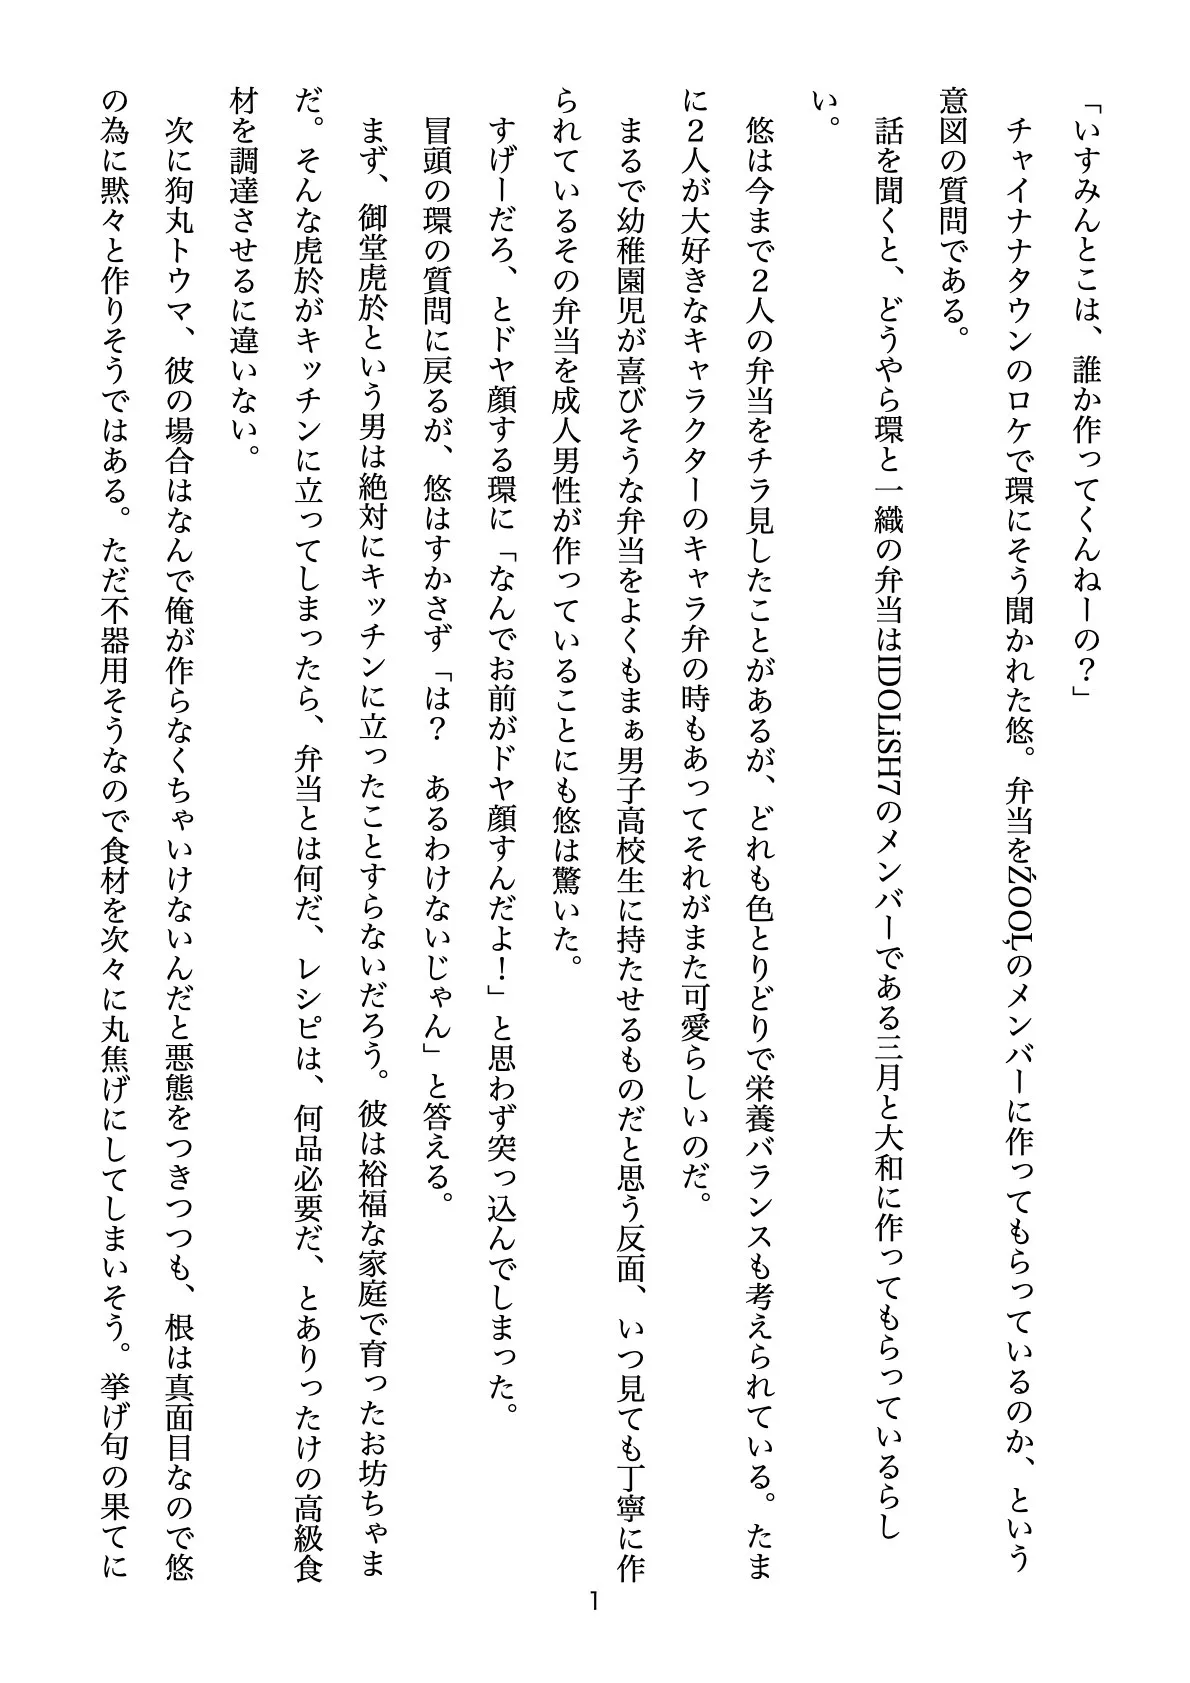 「いすみんとこは、誰か作ってくんねーの？」
　チャイナナタウンのロケで環にそう聞かれた悠。弁当をŹOOĻのメンバーに作ってもらっているのか、という
意図の質問である。
　話を聞くと、どうやら環と一織の弁当はIDOLiSH7のメンバーである三月と大和に作ってもらっているらし
い。
　悠は今まで２人の弁当をチラ見したことがあるが、どれも色とりどりで栄養バランスも考えられている。たま
に２人が大好きなキャラクターのキャラ弁の時もあってそれがまた可愛らしいのだ。
　まるで幼稚園児が喜びそうな弁当をよくもまぁ男子高校生に持たせるものだと思う反面、いつ見ても丁寧に作
られているその弁当を成人男性が作っていることにも悠は驚いた。
　すげーだろ、とドヤ顔する環に「なんでお前がドヤ顔すんだよ！」と思わず突っ込んでしまった。
　冒頭の環の質問に戻るが、悠はすかさず「は？　あるわけないじゃん」と答える。
　まず、御堂虎於という男は絶対にキッチンに立ったことすらないだろう。彼は裕福な家庭で育ったお坊ちゃま
だ。そんな虎於がキッチンに立ってしまったら、弁当とは何だ、レシピは、何品必要だ、とありったけの高級食
材を調達させるに違いない。
　次に狗丸トウマ、彼の場合はなんで俺が作らなくちゃいけないんだと悪態をつきつつも、根は真面目なので悠
の為に黙々と作りそうではある。ただ不器用そうなので食材を次々に丸焦げにしてしまいそう。挙げ句の果てに
1